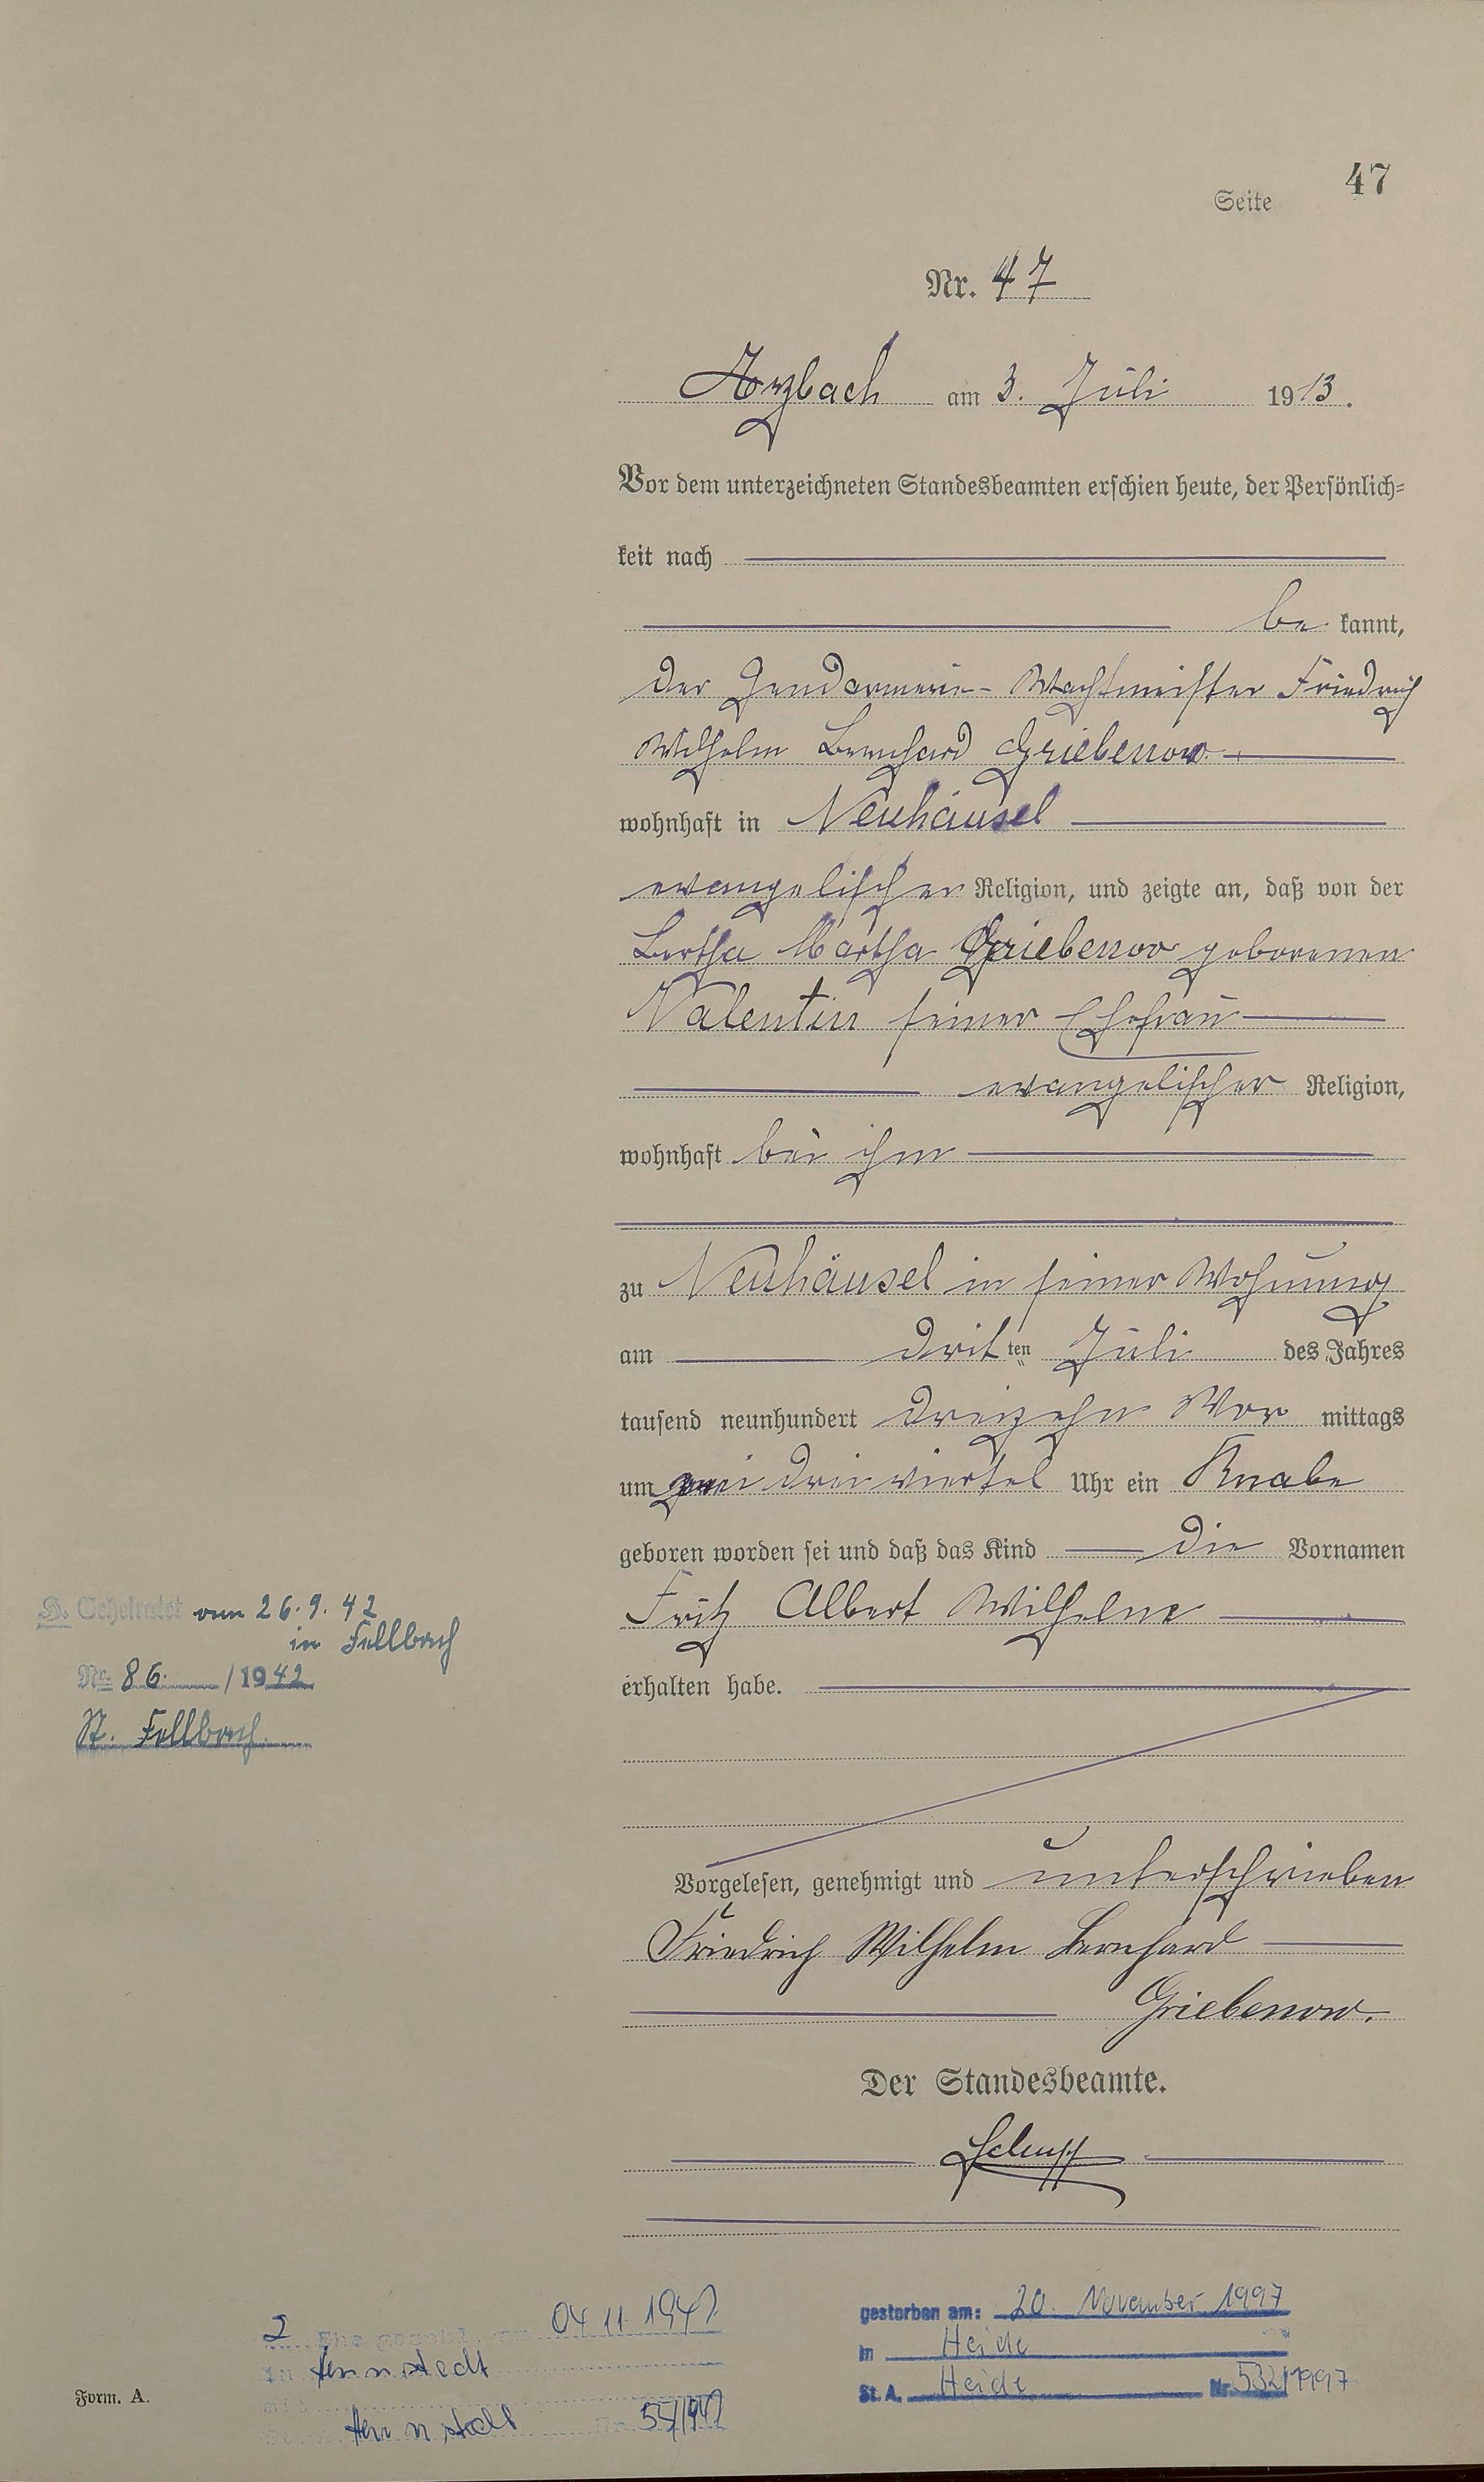 Seite 47
Nr. 47
Arzbach am 3. Juli 1913.
Vor dem unterzeichneten Standesbeamten erschien heute, der Persönlich-
keit nach
be kannt,
der Gendarmerie-Wachtmeister Friedrich
Wilhelm Bernhard Griebenow
wohnhaft in Neuhäusel
evangelischer Religion, und zeigte an, daß von der
Bertha Martha Griebenow geborenen
Valentin seiner Ehefrau
evangelischer Religion,
wohnhaft bei ihm
zu Neuhäusel in seiner Wohnung
am dritten Juli des Jahres
tausend neunhundert dreizehn Vor mittags
um zwei dreiviertel Uhr ein Knabe
geboren worden sei und daß das Kind die Vornamen
Fritz Albert Wilhelm
erhalten habe.
H. Geheiratet vom 26.9.42
in Fellbach
Nr. 86. /1942
St. Fellbach
Vorgelesen, genehmigt und unterschrieben
Friedrich Wilhelm Bernhard
Griebenow.
Der Standesbeamte.
2 Ehe geschl. am 04 11. 194
in Hennstedt
Hennstedt Nr.
gestorben am: 20. November 1997
in Heide
St. A. Heide Nr. 532/1997
Form. A.